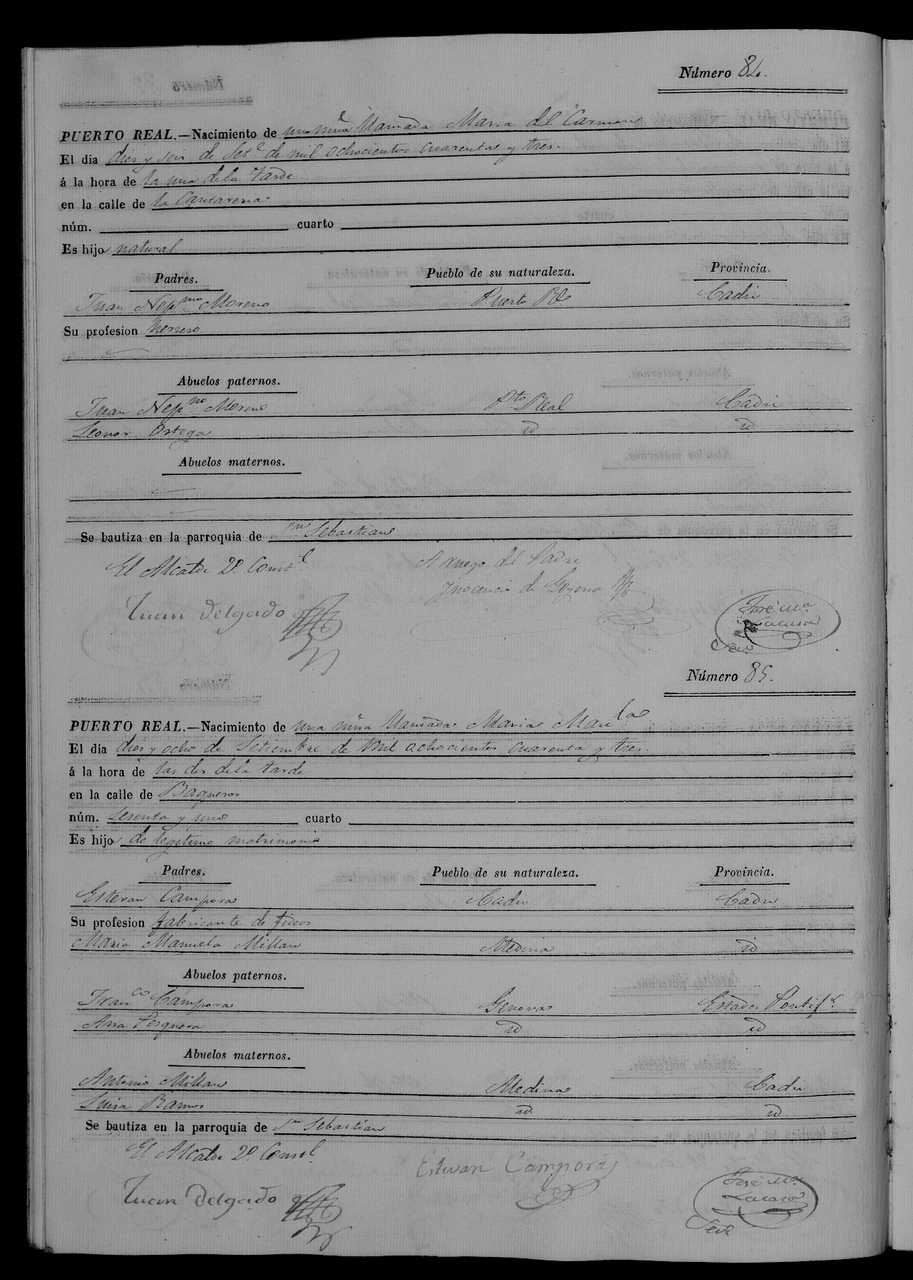 Número 84.
PUERTO REAL.—Nacimiento de una niña llamada Maria del Carmen
El dia diez y seis de Set.e de mil ochocientos cuarenta y tres.
á la hora de la una de la tarde
en la calle de la Cantarena
núm. cuarto
Es hijo natural
Padres. Pueblo de su naturaleza. Provincia.
Juan Nepmno Moreno Puerto Rl Cadiz
Su profesion
Abuelos paternos.
Juan Nepno Moreno Pto Real Cadiz
Leonor Ortega id id
Abuelos maternos.
Se bautiza en la parroquia de Sn Sebastian
El Alcalde 2º Const.l A ruego del Padre
Juan Delgado Inocencio de Lozano
José Ma.
Lacasa
Srio
Número 85.
PUERTO REAL.—Nacimiento de una niña llamada Maria Man.la
El dia diez y ocho de Setiembre de mil ochocientos cuarenta y tres.
á la hora de las dos de la tarde
en la calle de Baqueros
núm. Sesenta y uno cuarto
Es hijo de legitimo matrimonio
Padres. Pueblo de su naturaleza. Provincia.
Estevan Campora Cadiz Cadiz
Su profesion fabricante de fideos
Maria Manuela Millan Medina id
Abuelos paternos.
Franco Campora Genova Estados Pontif.s
Ana id id
Abuelos maternos.
Antonio Millan Medina Cadiz
Luisa Ramos id id
Se bautiza en la parroquia de Sn Sebastian
El Alcalde 2º Const.l
Juan Delgado Estevan Campora
José Ma.
Lacasa
Srio